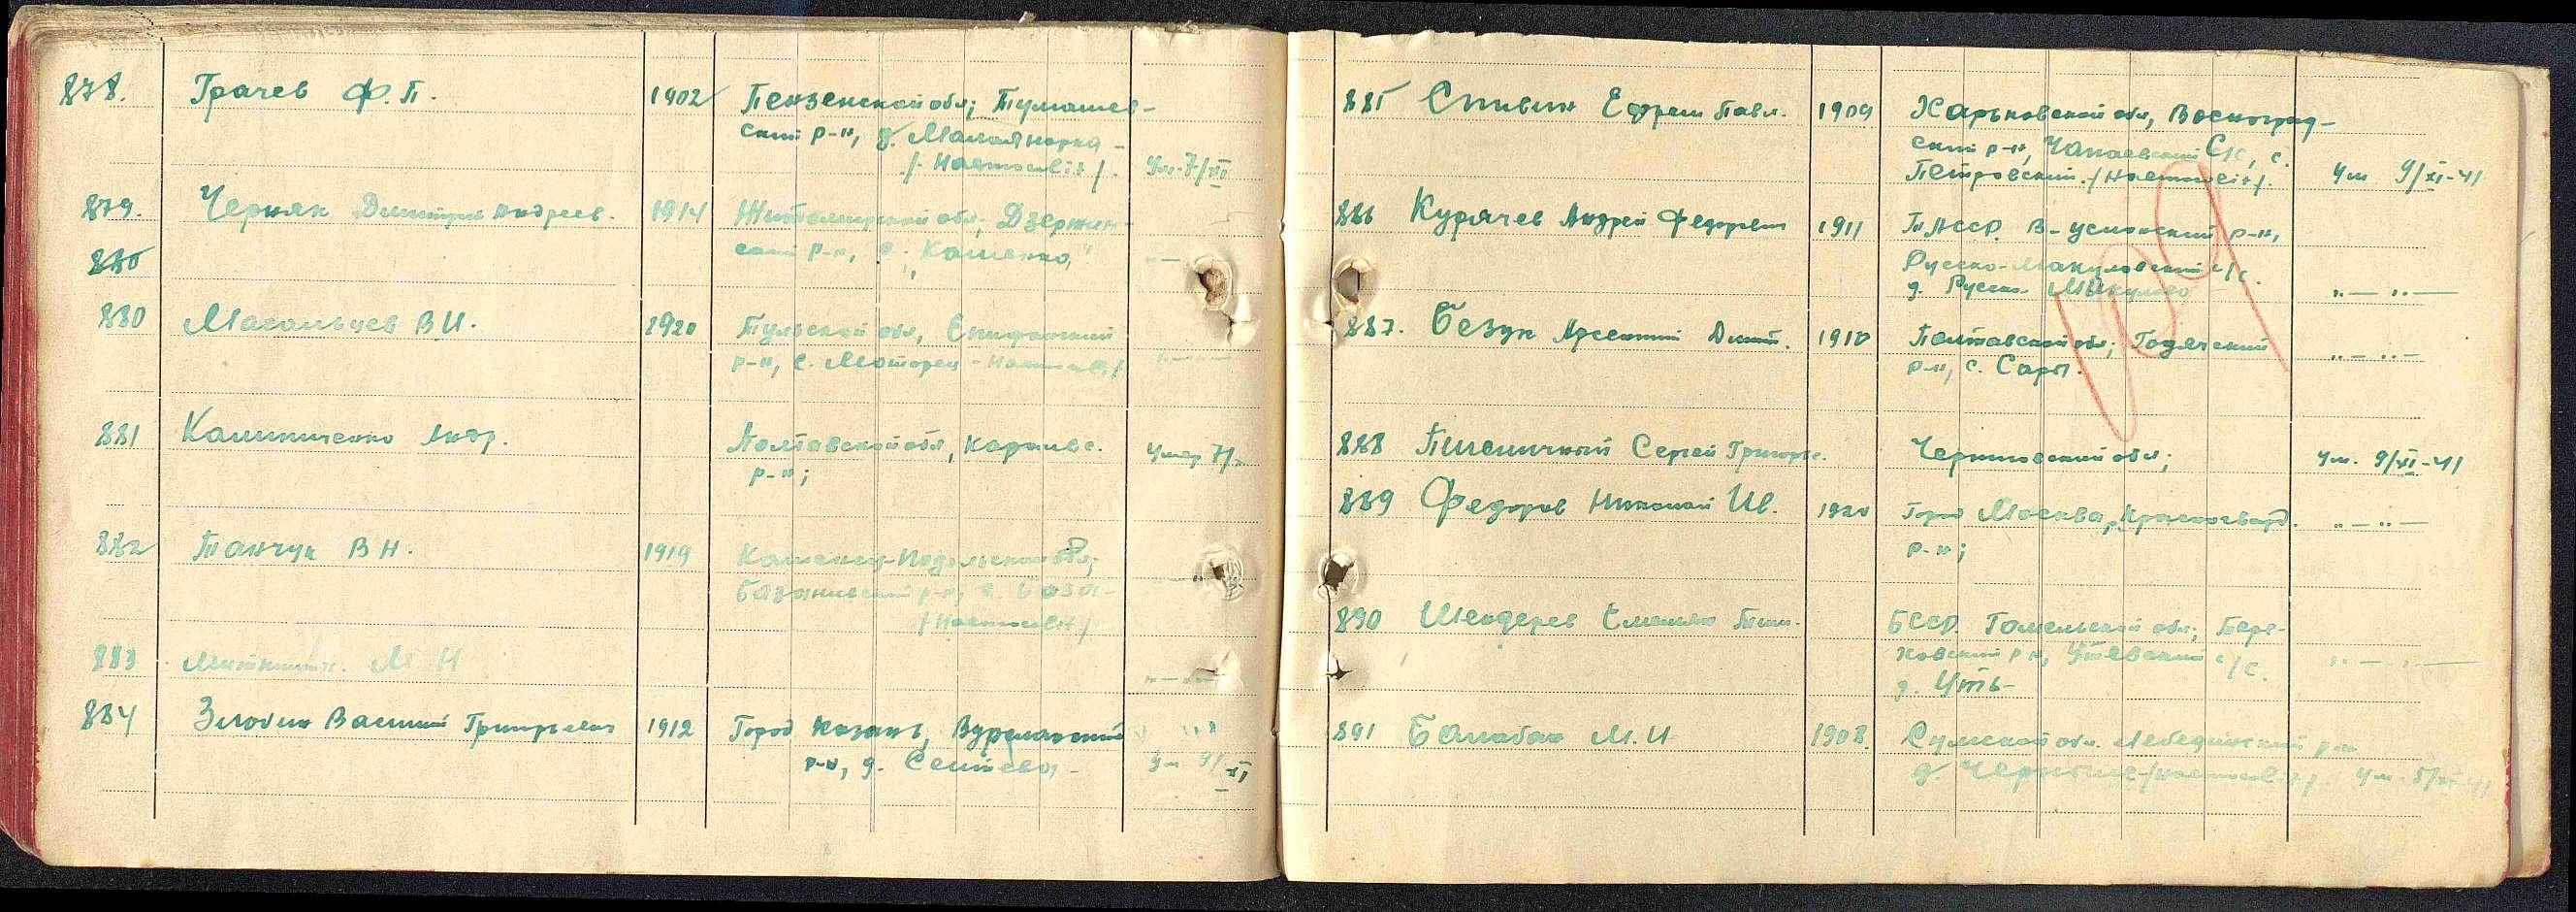 878. Грачев Ф.П. 1902 Пензенской обл; Тумашев-
ский р-н, д. Малая норка -
/Haemoculit/. Ум-7/XI
879. Черняк Дмитрий Андреев. 1914 Житомирской обл; Дзержин-
ский р-н, с. „Каменка"
880
880 Масальцев В.И. 1920 Тульской обл, Епифанский
р-н, с. Моторец -
881 Калиниченко Андр. Полтавской обл, Карловс. Умер 7/X
р-н;
882 Танчук В Н. 1919 Каменец-Подольской обл;
р-н, с. База-
883 М Н
884 Злобин Василий Григорьевич 1912 Город Казань,
р-н, д. Сентево - Ум 9/XI
885 Спивин Ефрем Павл. 1909 Харьковской обл,
ский р-н, Чапаевский С/С, с.
Петровский. Ум 9/XI-41
886 Курячев Андрей Федорович 1911 ТАССР. В-услонский р-н,
Русско-Макуловский с/с.
д. Русско-Макулово „ — „ —
887. Безук Арсентий Дмит. 1910 Полтавской обл; Гадячский „ — „ —
р-н, с. Сары.
888 Пшеничный Сергей Григорье. Черниговской обл; Ум. 9/XI-41
889 Федоров Николай Ив. 1920 Город Москва, Красногвард. „ — „ —
р-н;
890 Шендерев Емельян Тим. БССР. Гомельской обл; Тере-
ховский р-н, Утевский с/с. „ — „ —
д. Уть-
891 Балабас М.И 1908. Сумской обл. Лебединский р-н
д. Ум. 5/XI-41